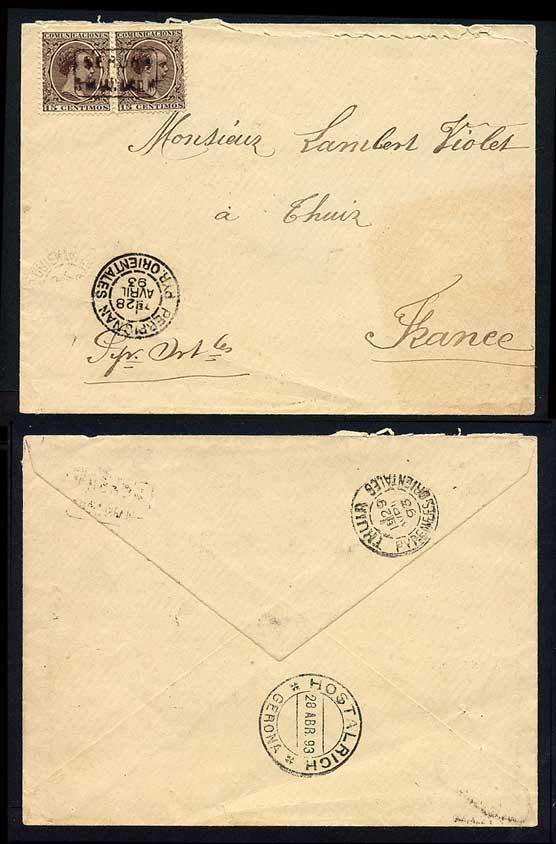 COMUNICACIONES COMUNICACIONES
15 CENTIMOS 15 CENTIMOS
Monsieur Lambert Violet
à Thuir
PERPIGNAN PYR. ORIENTALES
28
AVRIL
93
Pyr. Ort les
France
THUIR PYRENEES ORIENTALES
29
93
HOSTALRICH
28 ABR. 93
* GERONA *